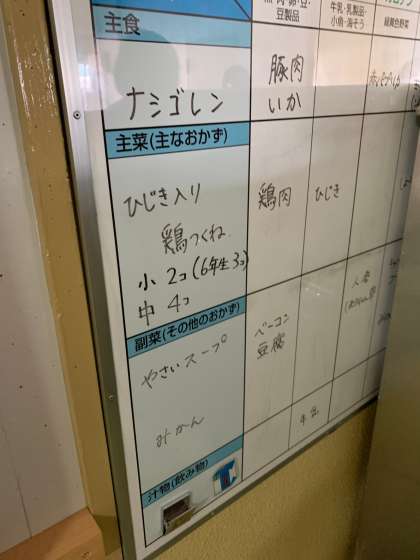 豆製品
牛乳・乳製品・
小魚・海そう
緑黄色野菜
主食
ナシゴレン
豚肉
いか
主菜(主なおかず)
ひじき入り
鶏つくね
小 2コ (6年生 3コ)
中 4コ
鶏肉
ひじき
副菜(その他のおかず)
やさいスープ
みかん
ベーコン
豆腐
人参
汁物(飲み物)
牛乳